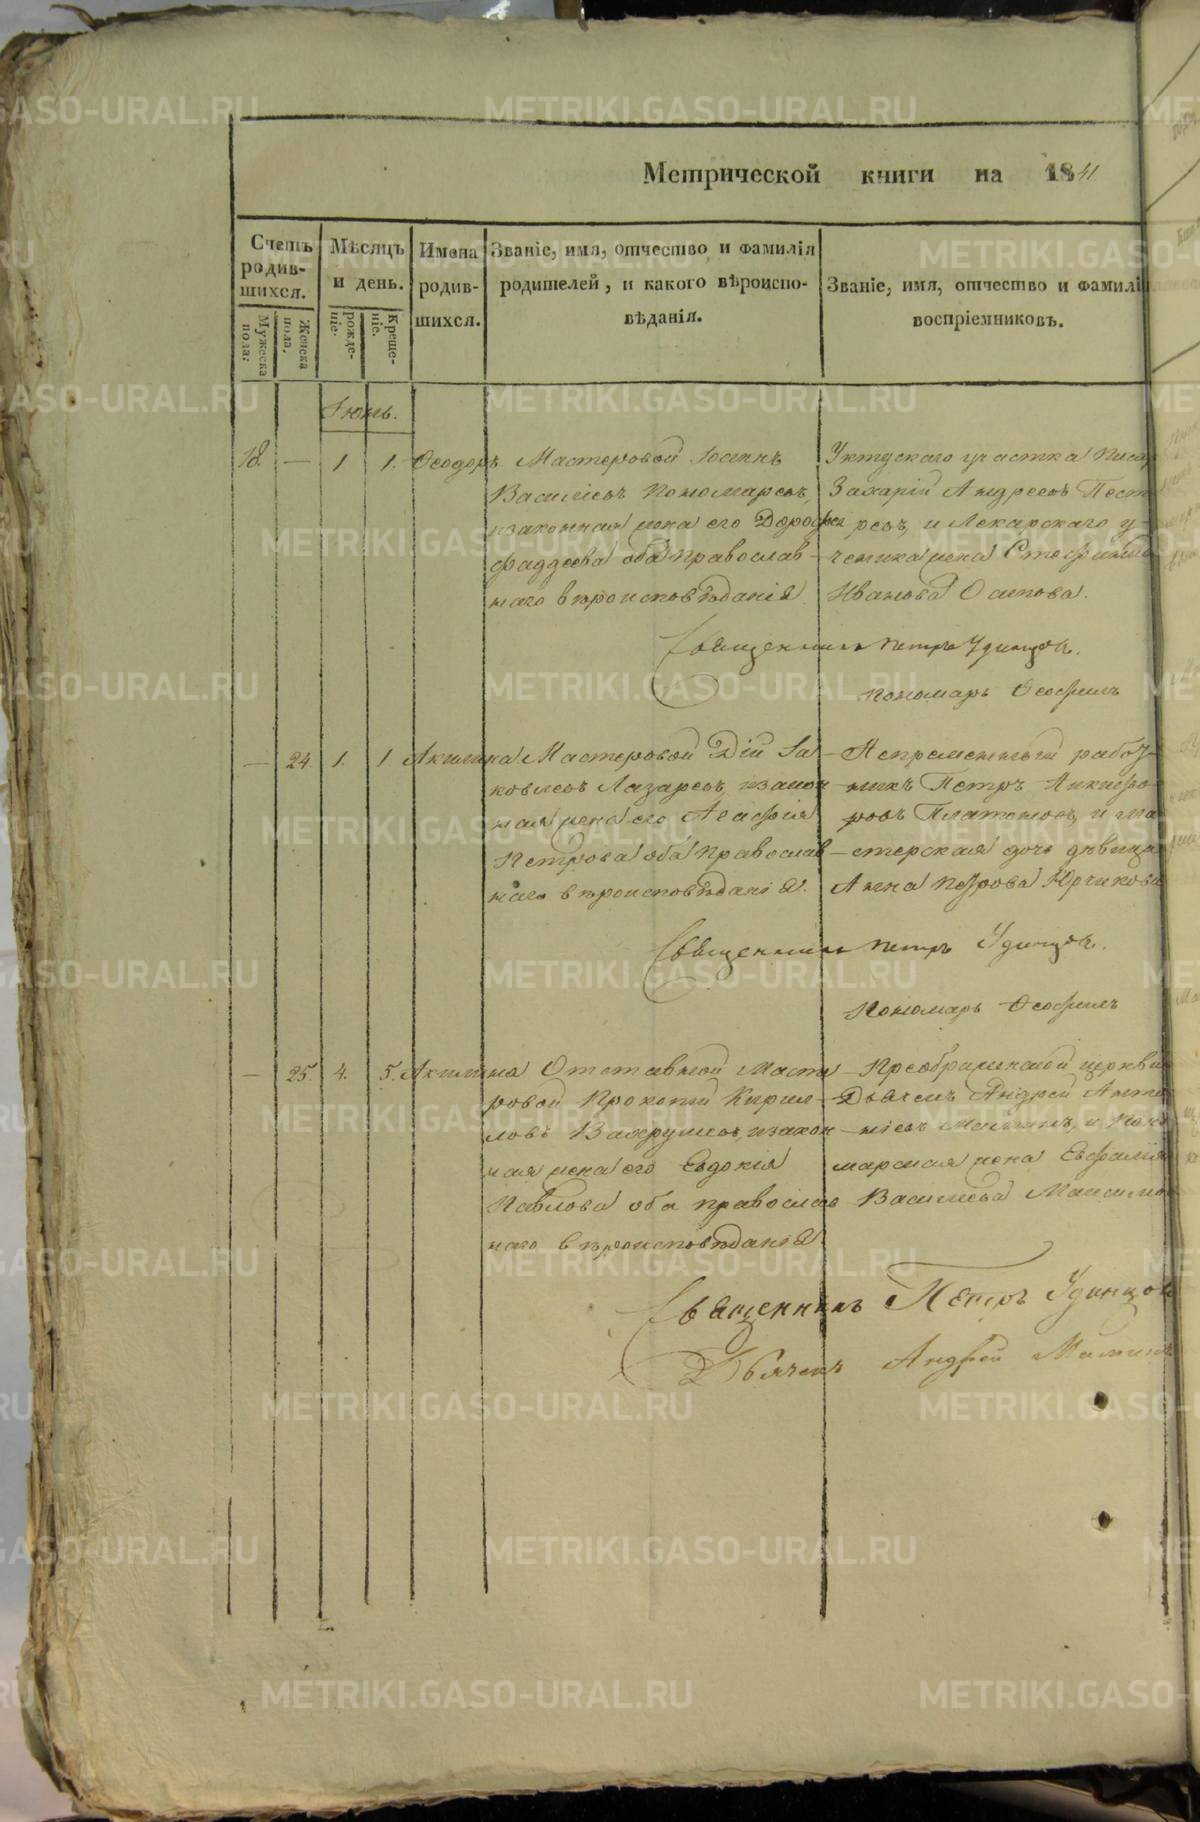 Метрической книги на 1841
Счетъ родив-шихся.
Мужеска пола.
Женска пола.
Мѣсяцъ и день.
рожде-нiе.
Креще-нiе.
Имена родив-шихся.
Званiе, имя, отчество и фамилiя
родителей, и какого вѣроиспо-
вѣданiя.
Званiе, имя, отчество и фамилi
воспрiемниковъ.
Iюнь.
18. — 1 1. Ѳеодоръ Мастеровой Iоаннъ
Васильевъ Пономаревъ,
и законная жена его Дорофея
Фаддеева оба православ-
наго вѣроисповѣданiя
Уктускаго участка Писар
Захарiй Андреевъ Пест
ревъ, и Лекарскаго у-
ченика жена
Иванова Осипова.
Священникъ Петръ Удинцовъ.
Пономарь Ѳеофилъ
— 24. 1. 1 Акилина Мастеровой Дiй Iа-
ковлевъ Лазаревъ, и закон
ная жена его Агафiя
Петрова оба православ-
наго вѣроисповѣданiя.
Непременный работ-
никъ Петръ Никифо-
ровъ Платоновъ, и ма
стерская дочь дѣвица
Анна Петрова Юрчикова
Священникъ Петръ Удинцовъ.
Пономарь Ѳеофилъ
— 25. 4. 5. Акилина Отставной Масте
ровой Прокопiй Кирил-
ловъ Вахрушевъ, и закон
ная жена его Евдокiя
Павлова оба православ
наго вѣроисповѣданiя
Преображенской церкви
Дьячекъ Андрей Анто
нiевъ Маминъ, и Поно
марская жена Евфалiя
Васильева Максимо
Священникъ Петръ Удинцовъ
Дьячекъ Андрей Маминъ
METRIKI.GASO-URAL.RU